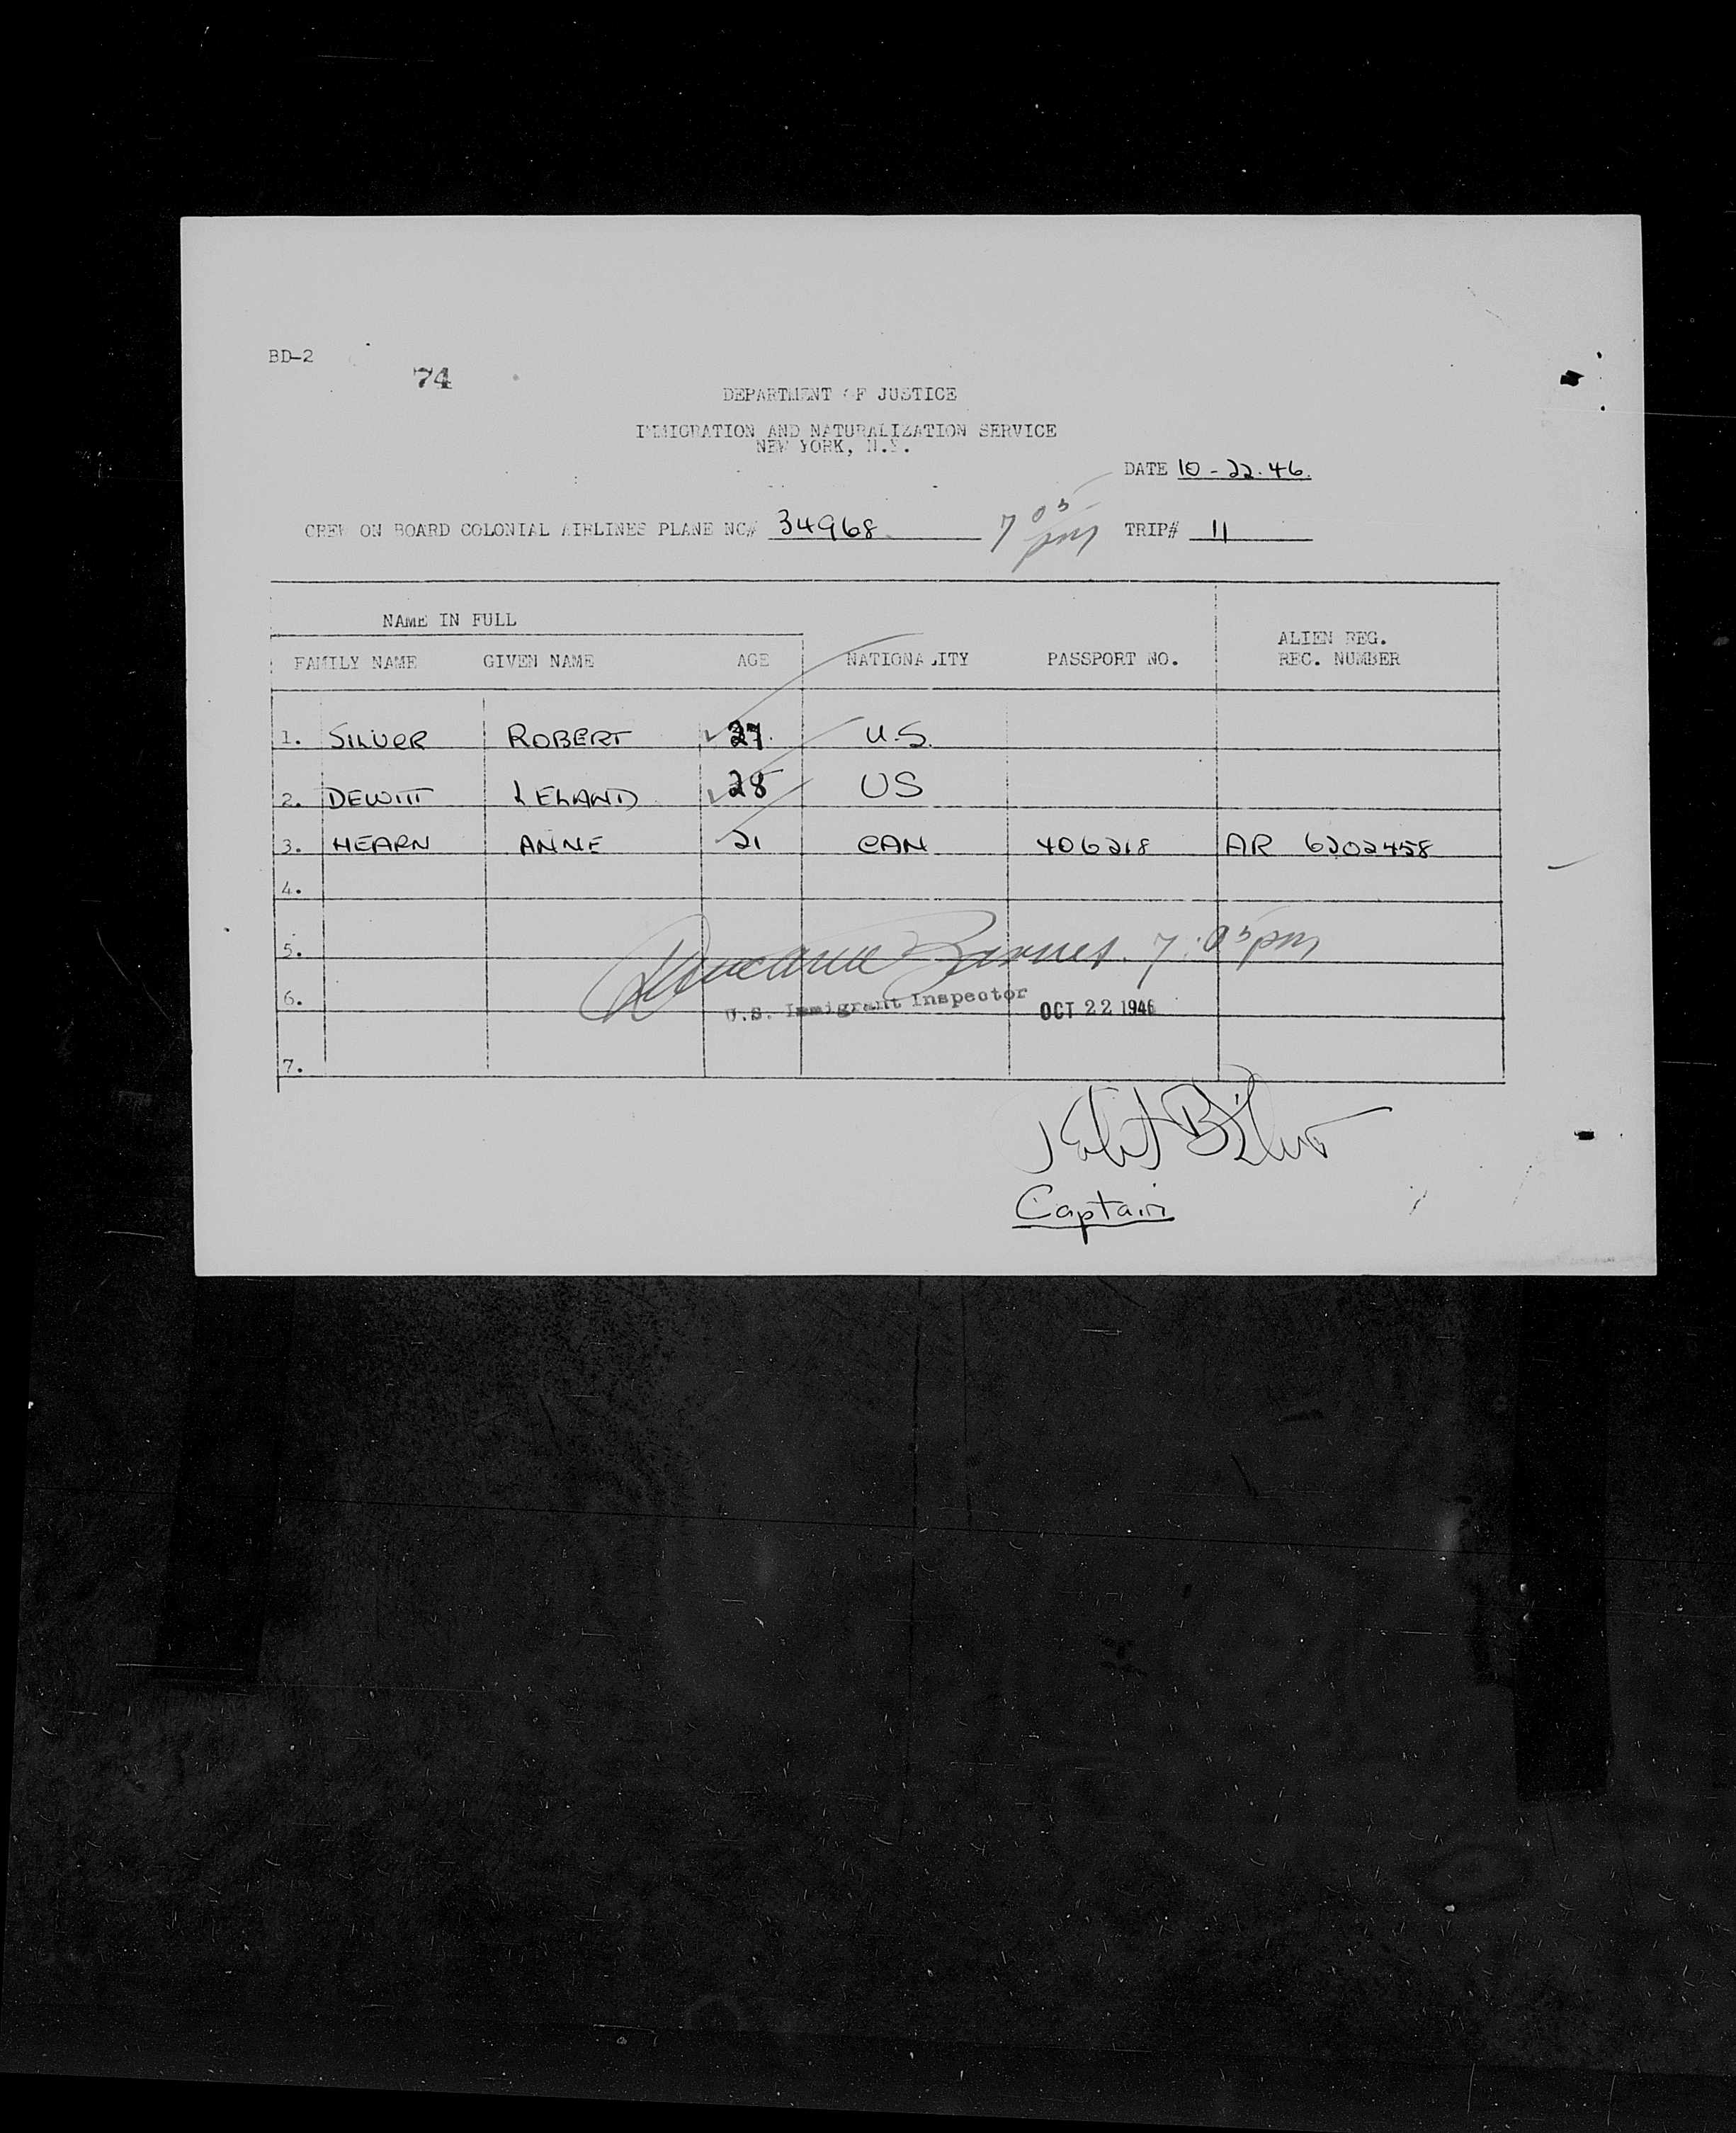 BD-2
74
DEPARTMENT OF JUSTICE
IMMIGRATION AND NATURALIZATION SERVICE
NEW YORK, N.Y.
DATE 10-22-46.
CREW ON BOARD COLONIAL AIRLINES PLANE NC# 34968 7 05 pm TRIP# 11
NAME IN FULL
FAMILY NAME GIVEN NAME AGE NATIONALITY PASSPORT NO. ALIEN REG. REC. NUMBER
1. SILVER ROBERT 27 U.S.
2. DEWITT LELAND 28 US
3. HEARN ANNE 21 CAN 406218 AR 6202458
4.
5.
7:05 pm
6.
U.S. Immigrant Inspector OCT 22 1946
7.
Captain